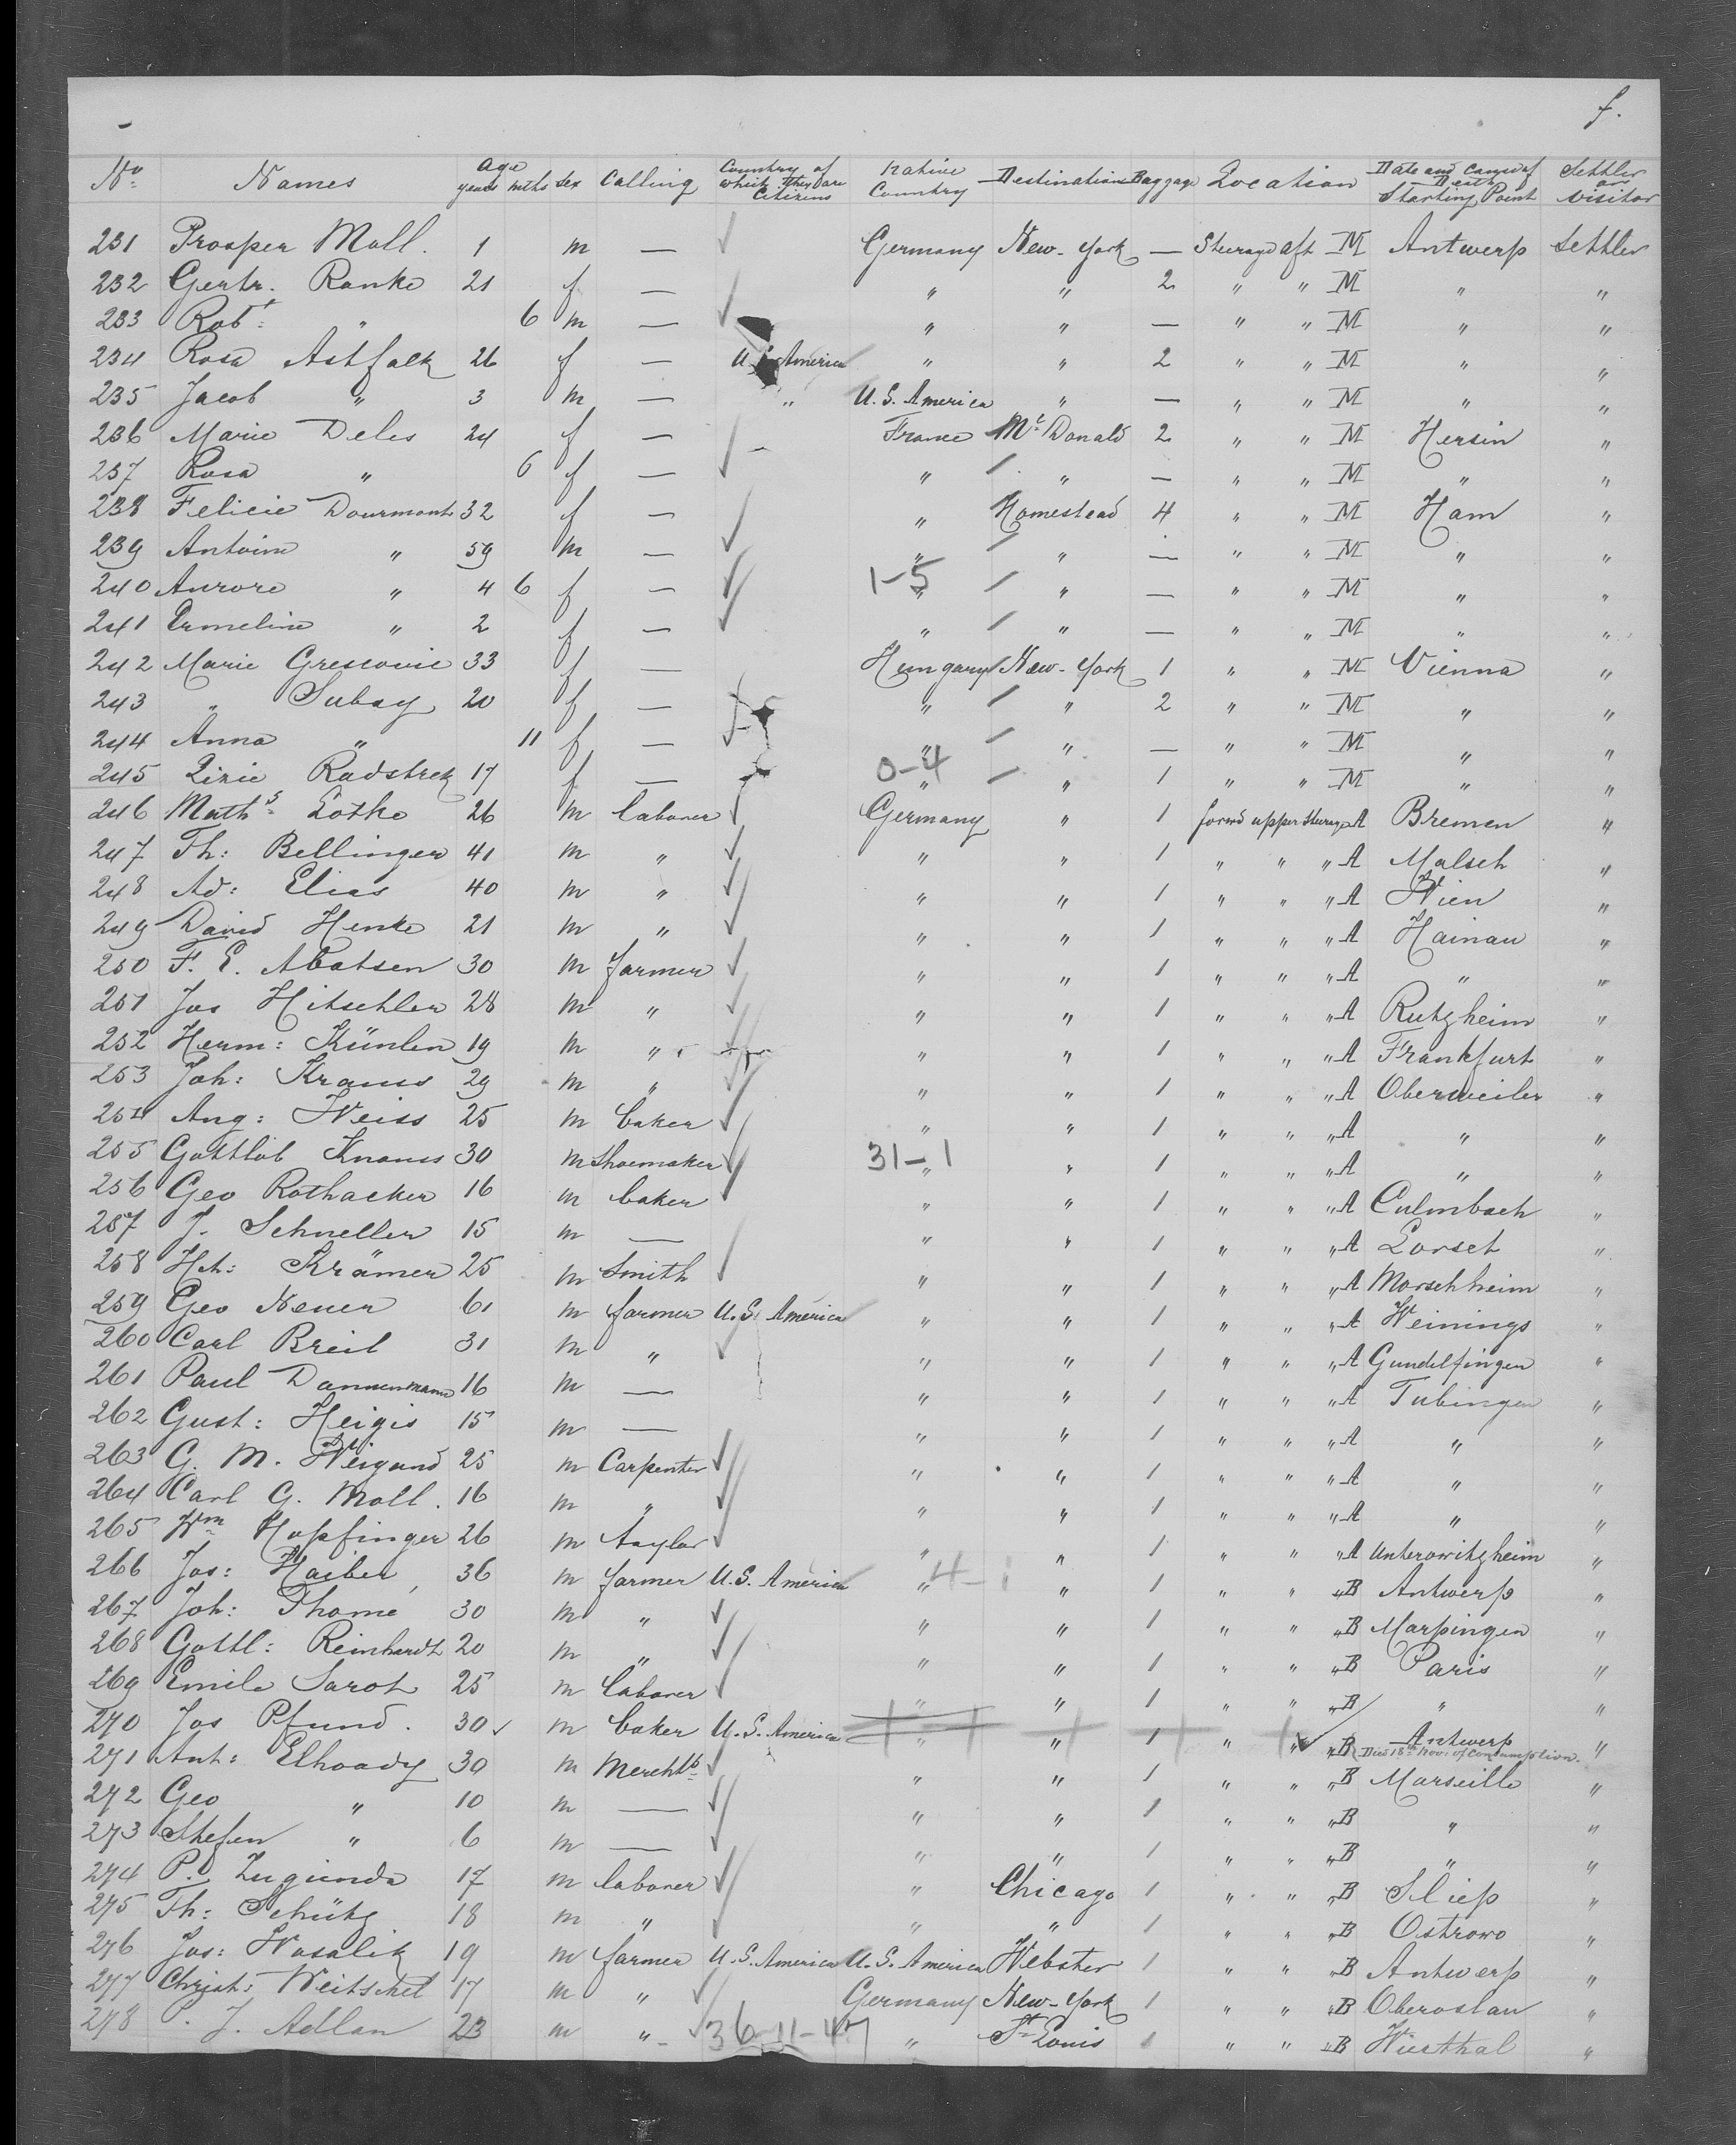 f.
No Names Age years mths Sex Calling Country of which they are Citizens Native Country Destination Baggage Location Date and Cause of Death Starting Point Settler or visitor
231 Prosper Moll. 1 m — Germany New-York — Steerage aft M Antwerp Settler
232 Gertr. Ranke 21 f — " " 2 " " M " "
233 Robt: " 6 m — " " — " " M " "
234 Rosa Astfalk 26 f — U.S. America " " 2 " " M " "
235 Jacob " 3 m — " U.S. America " — " " M " "
236 Marie Deles 24 f — France Mc Donald 2 " " M Hersin "
237 Rosa " 6 f — " " — " " M " "
238 Felicie Dourmont 32 f — " Homestead 4 " " M Ham "
239 Antoine " 59 m — " " — " " M " "
240 Aurore " 4 6 f — 1-5 " " — " " M " "
241 Ermeline " 2 f — " " — " " M " "
242 Marie Grescovic 33 f — Hungary New-York 1 " " M Vienna "
243 " Subay 20 f — " " 2 " " M " "
244 Anna " 11 f — " " — " " M " "
245 Lizie Radstrek 17 f — 0-4 " " 1 " " M " "
246 Maths Lotke 26 m laborer Germany " 1 forwd upper Steerage A Bremen "
247 Th: Bellinger 41 m " " " 1 " " " A Malsch "
248 Ad: Elias 40 m " " " 1 " " " A Wien "
249 David Henke 21 m " " " 1 " " " A Hainau "
250 F. E. Abatsen 30 m farmer " " 1 " " " A " "
251 Jos Hitschler 28 m " " " 1 " " " A Rutzheim "
252 Herm: Künlen 19 m " " " 1 " " " A Frankfurt "
253 Joh: Kraus 29 m " " " 1 " " " A Oberweiler "
254 Aug: Weiss 25 m baker " " 1 " " " A " "
255 Gottlob Knauss 30 m Shoemaker 31-1 " " 1 " " " A " "
256 Geo Rothacker 16 m baker " " 1 " " " A Culmbach "
257 J. Schneller 15 m — " " 1 " " " A Lorset "
258 Hch: Krämer 25 m Smith " " 1 " " " A Morschheim "
259 Geo Neuer 61 m farmer U.S. America " " 1 " " " A Weinings "
260 Carl Breil 31 m " " " 1 " " " A Gundelfingen "
261 Paul Dannenmann 16 m — " " 1 " " " A Tubingen "
262 Gust: Heigis 15 m — " " 1 " " " A " "
263 G. M. Weigand 25 m Carpenter " " 1 " " " A " "
264 Carl G. Moll. 16 m " " " 1 " " " A " "
265 Wm Hopfinger 26 m taylor " " 1 " " " A Unterowitzheim "
266 Jos: Haiber 36 m farmer U.S. America 4-1 " " 1 " " " B Antwerp "
267 Joh: Thomé 30 m " " " 1 " " " B Marpingen "
268 Gottl: Reinhardt 20 m " " " 1 " " " B Paris "
269 Emile Sarot 25 m laborer " " 1 " " " B " "
270 Jos Pfund. 30 m baker U.S. America " " 1 " " " B Antwerp "
Died 18th Nov: of Consumption.
271 Ant: Elhoady 30 m Mercht " " 1 " " " B Marseille "
272 Geo " 10 m — " " 1 " " " B " "
273 Stefen " 6 m — " " 1 " " " B " "
274 P. Zugunda 17 m laborer " Chicago 1 " " " B Sliep "
275 Th: Schütz 18 m " " " 1 " " " B Ostrowo "
276 Jos: Wasalik 19 m farmer U.S. America U.S. America Webster 1 " " " B Antwerp "
277 Christ: Weitschel 17 m " Germany New-York 1 " " " B Oberoslau "
278 P. J. Adlan 23 m " 36-11-47 " St Louis 1 " " " B Wiesthal "